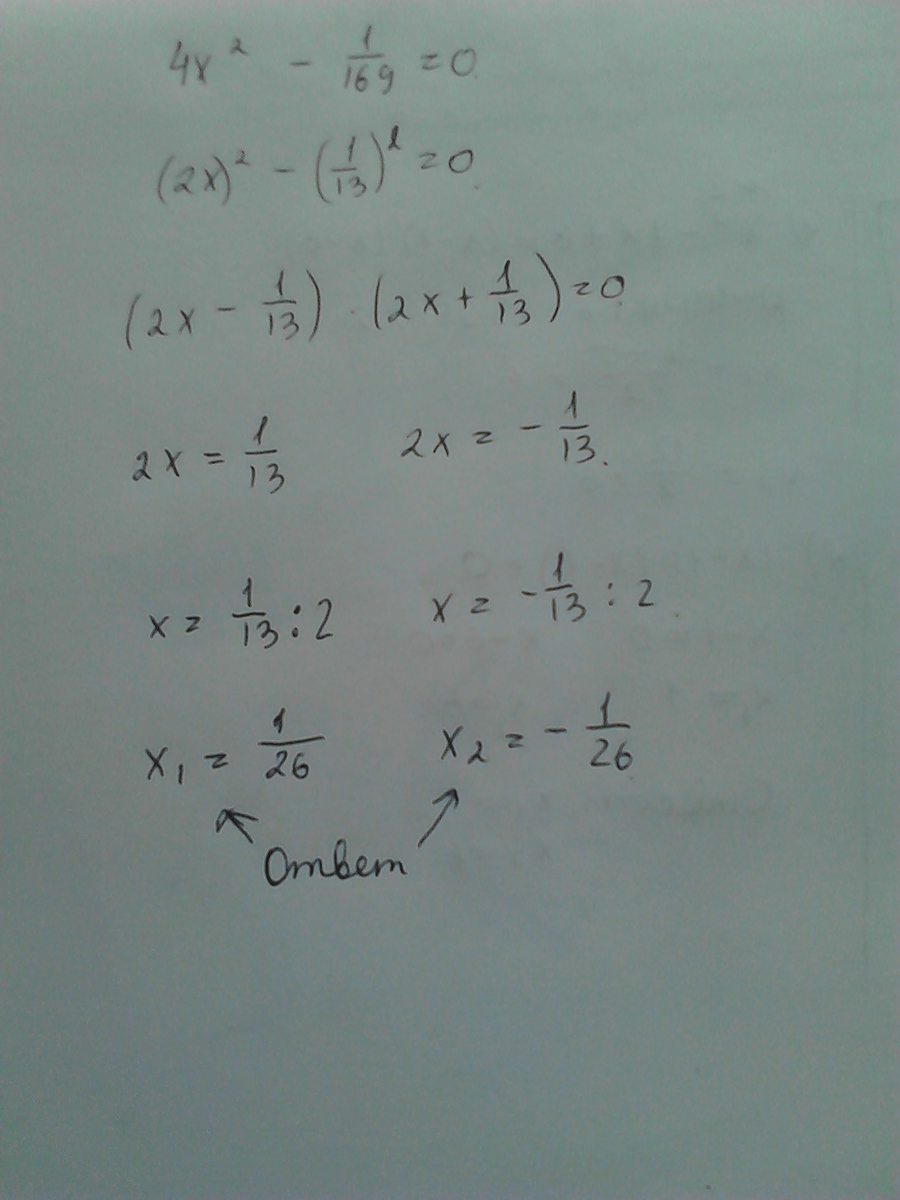 4x² - 1/169 = 0
(2x)² - (1/13)² = 0
(2x - 1/13) · (2x + 1/13) = 0
2x = 1/13 2x = - 1/13.
x = 1/13 : 2 x = - 1/13 : 2
x₁ = 1/26 x₂ = - 1/26
Ответ